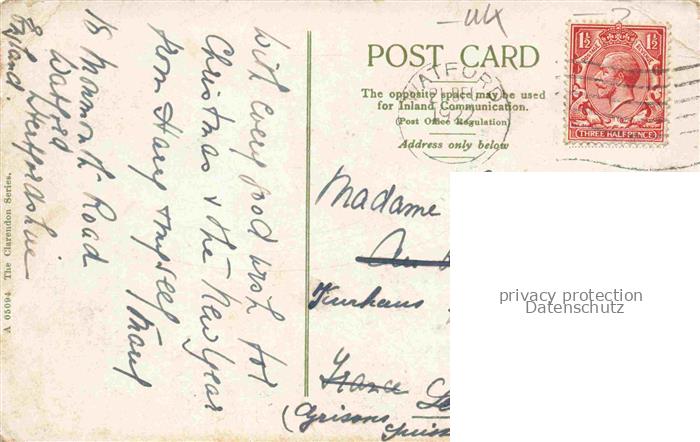 - UK
- ?
POST CARD
The opposite space may be used
for Inland Communication.
(Post Office Regulation)
Address only below
WATFORD
1½ 1½
THREE HALFPENCE
With every good wish for
Christmas & the New Year
from Harry & myself
15 Monmouth Road
Watford
Hertfordshire
England.
Madame
Kurhaus
France
(Grisons
Suisse
A 05094 The Clarendon Series.
privacy protection
Datenschutz